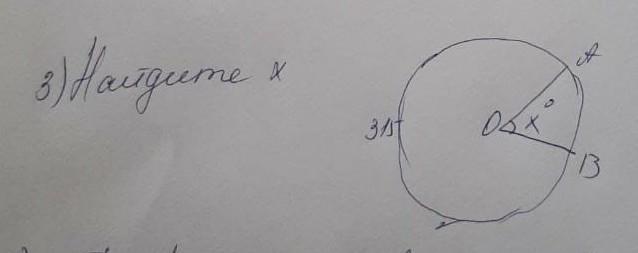 3) Найдите x
A
315
O
x°
B